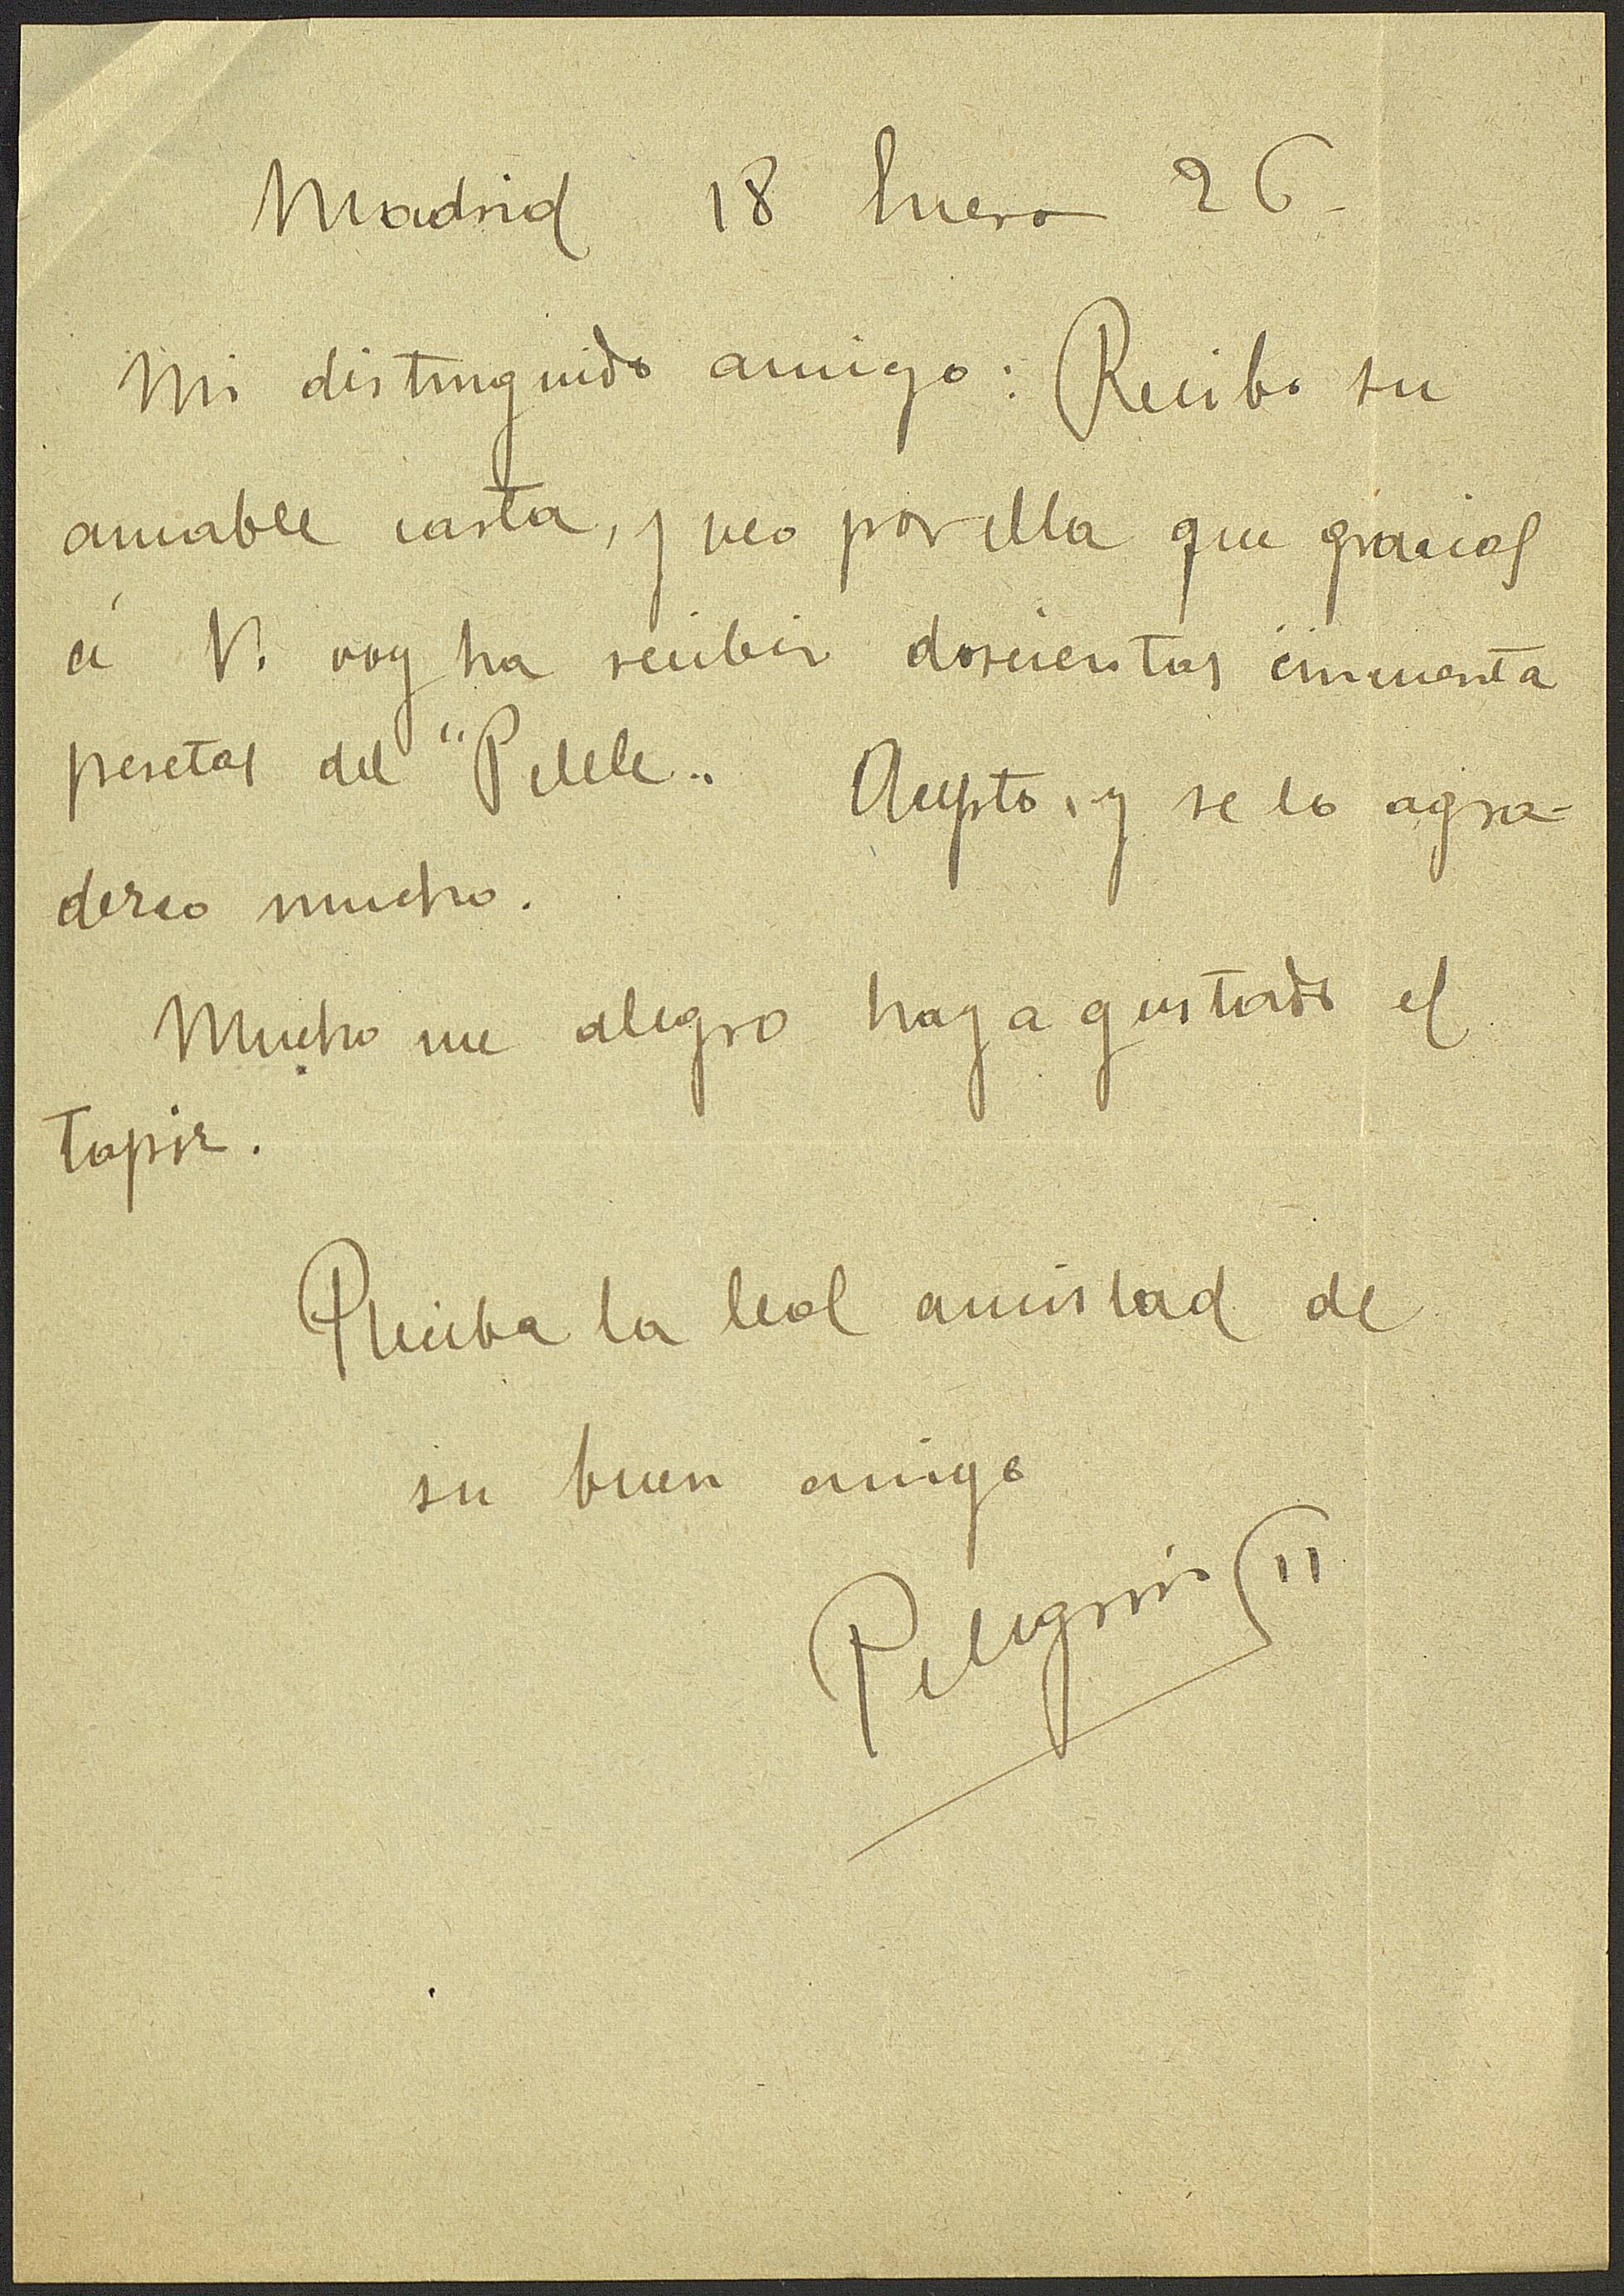 Madrid 18 Enero 26-
Mi distinguido amigo: Recibo su
amable carta, y veo por ella que gracias
á V. voy ha recibir doscientas cincuenta
pesetas del "Pelele". Acepto, y se lo agra-
dezco mucho.
Mucho me alegro haya gustado el
tapiz.
Reciba la leal amistad de
su buen amigo